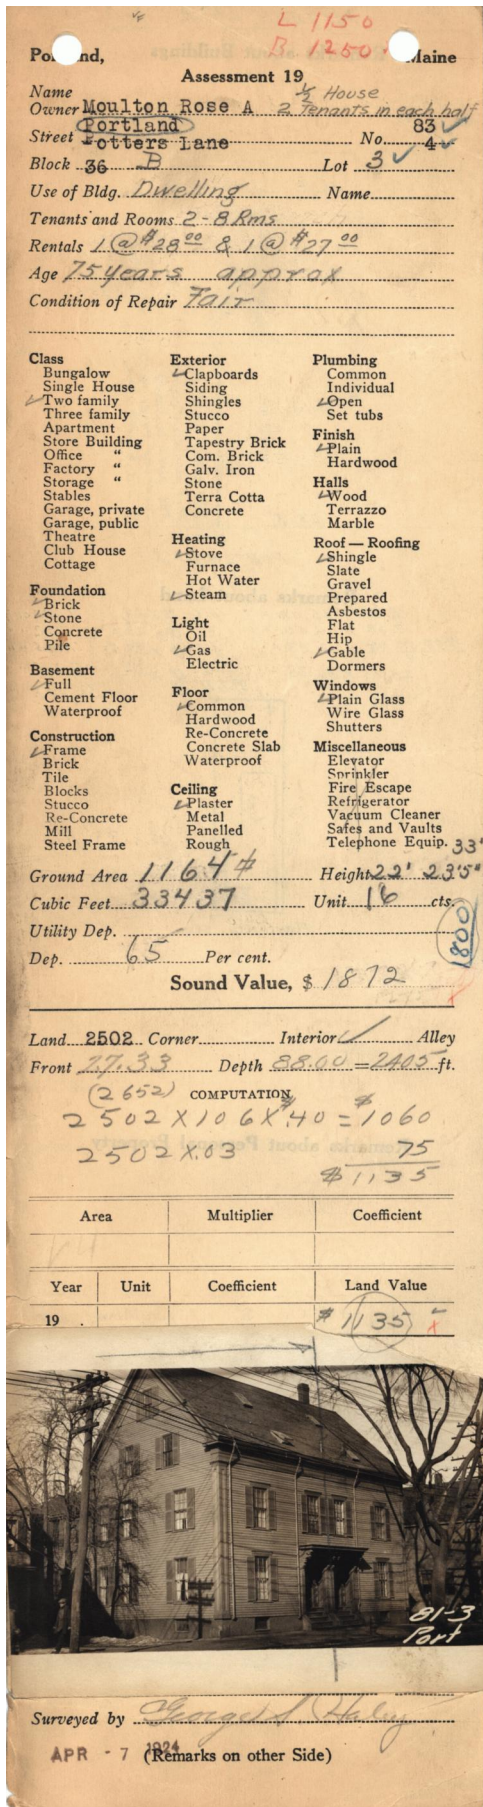 L 1150
B 1250
Portland, Maine
Assessment 19
Name ½ House
Owner Moulton Rose A 2 Tenants in each half
Portland 83
Street Potters Lane No. 4
Block 36 B Lot 3
Use of Bldg. Dwelling Name
Tenants and Rooms 2-8 Rms
Rentals 1 @ $28 00 & 1 @ $27 00
Age 75 years approx
Condition of Repair Fair
Class
Bungalow
Single House
✓Two family
Three family
Apartment
Store Building
Office "
Factory "
Storage "
Stables
Garage, private
Garage, public
Theatre
Club House
Cottage
Foundation
✓Brick
✓Stone
Concrete
Pile
Basement
✓Full
Cement Floor
Waterproof
Construction
✓Frame
Brick
Tile
Blocks
Stucco
Re-Concrete
Mill
Steel Frame
Exterior
✓Clapboards
Siding
Shingles
Stucco
Paper
Tapestry Brick
Com. Brick
Galv. Iron
Stone
Terra Cotta
Concrete
Heating
✓Stove
Furnace
Hot Water
✓Steam
Light
Oil
✓Gas
Electric
Floor
✓Common
Hardwood
Re-Concrete
Concrete Slab
Waterproof
Ceiling
✓Plaster
Metal
Panelled
Rough
Plumbing
Common
Individual
✓Open
Set tubs
Finish
✓Plain
Hardwood
Halls
✓Wood
Terrazzo
Marble
Roof — Roofing
✓Shingle
Slate
Gravel
Prepared
Asbestos
Flat
Hip
✓Gable
Dormers
Windows
✓Plain Glass
Wire Glass
Shutters
Miscellaneous
Elevator
Sprinkler
Fire Escape
Refrigerator
Vacuum Cleaner
Safes and Vaults
Telephone Equip. 33'
Ground Area 1164 Height 22' 23'5"
Cubic Feet 33437 Unit 16 cts.
Utility Dep.
1800
Dep. 65 Per cent.
Sound Value, $ 1872
Land 2502 Corner Interior ✓ Alley
Front 27.33 Depth 88.00 = 2405 ft.
(2652) COMPUTATION
2502 X 106 X $.40 = $1060
2502 X .03 75
$1135
Area Multiplier Coefficient
Year Unit Coefficient Land Value
19 . $ 1135
81-3
Port
Surveyed by George S. Haley
APR - 7 1924
(Remarks on other Side)